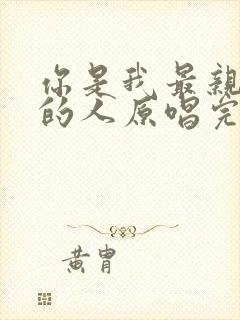 你是我最親
的人原唱完
黄胄